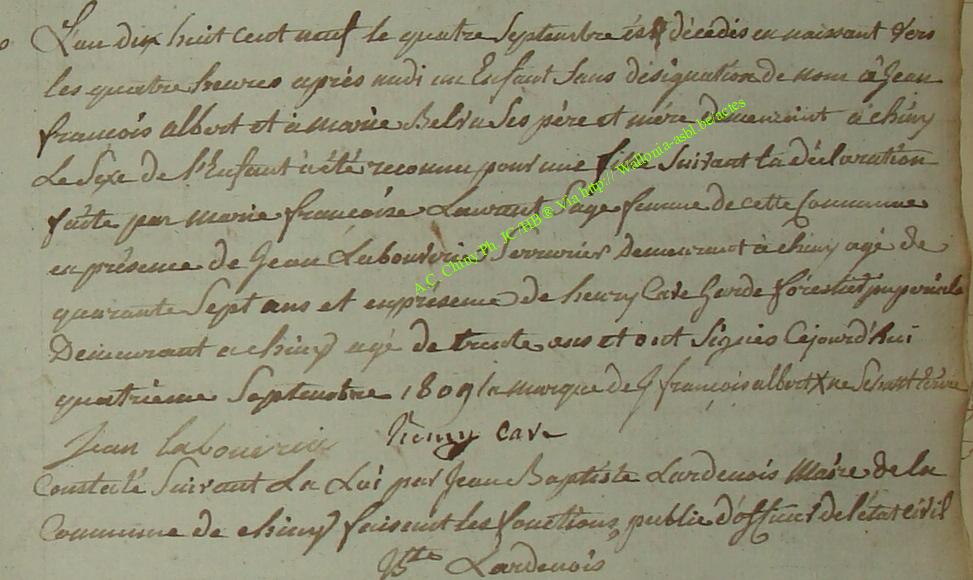 L'an dix huit cent neuf le quatre Septembre est décédés en naissant Vers
les quatre heures après midi un Enfant Sans désignation de nom à Jean
françois albert et à marie Belva Ses père et mére demeurant à chiny
Le Sexe de l'Enfant à été reconnu pour une fille Suivant la déclaration
faite par marie françoise Laurant Sage femme de cette Commune
en présence de Jean Labouverie Serrurier Demeurant à chiny agé de
quarante Sept ans et en présence de henry Cave Garde forestier
Demeurant a chiny agé de trente ans et ont Signés Cejourd'hui
quatrième Septembre 1809 la marque de J françois albert X ne Sachant Ecrire
Jean labouverie henry cave
Constaté Suivant La Loi par Jean Baptiste Lardenois Maire de la
Commune de chiny faisant les fonctions public d'officier de l'état civil
Bte Lardenois
A.C. Chiny Ph. JC/HB ® Via http://Wallonia-asbl.be/actes